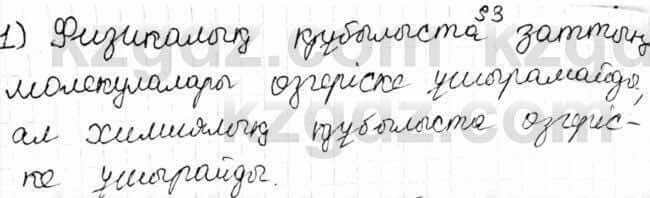 §3
1) Физикалық құбылыста заттың
молекулалары өзгеріске ұшырамайды,
ал химиялық құбылыста өзгеріс-
ке ұшырайды.